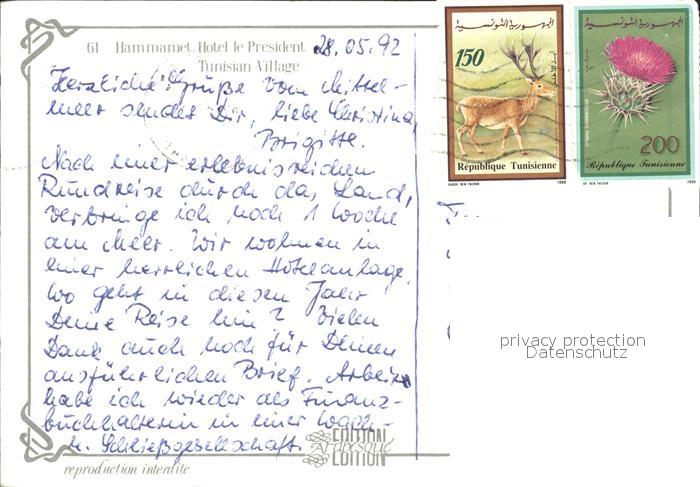 61 Hammamet. Hotel le President 28.05.92
Tunisian Village
Herzliche Grüße vom Mittel-
meer sendet Dir, liebe Christina,
Brigitte.
Nach einer erlebnisreichen
Rundreise durch das Land,
verbringe ich noch 1 Woche
am Meer. Wir wohnen in
einer herrlichen Hotelanlage.
Wo geht in diesem Jahr
Deine Reise hin? Vielen
Dank auch noch für Deinen
ausführlichen Brief. Arbeiten
habe ich wieder als Finanz-
buchhalterin in einer Wach-
u. Schließgesellschaft.
EDITION
Arabesque
EDITION
reproduction interdite
الجمهورية التونسية
150
République Tunisienne
1990
الجمهورية التونسية
200
République Tunisienne
1990
privacy protection
Datenschutz